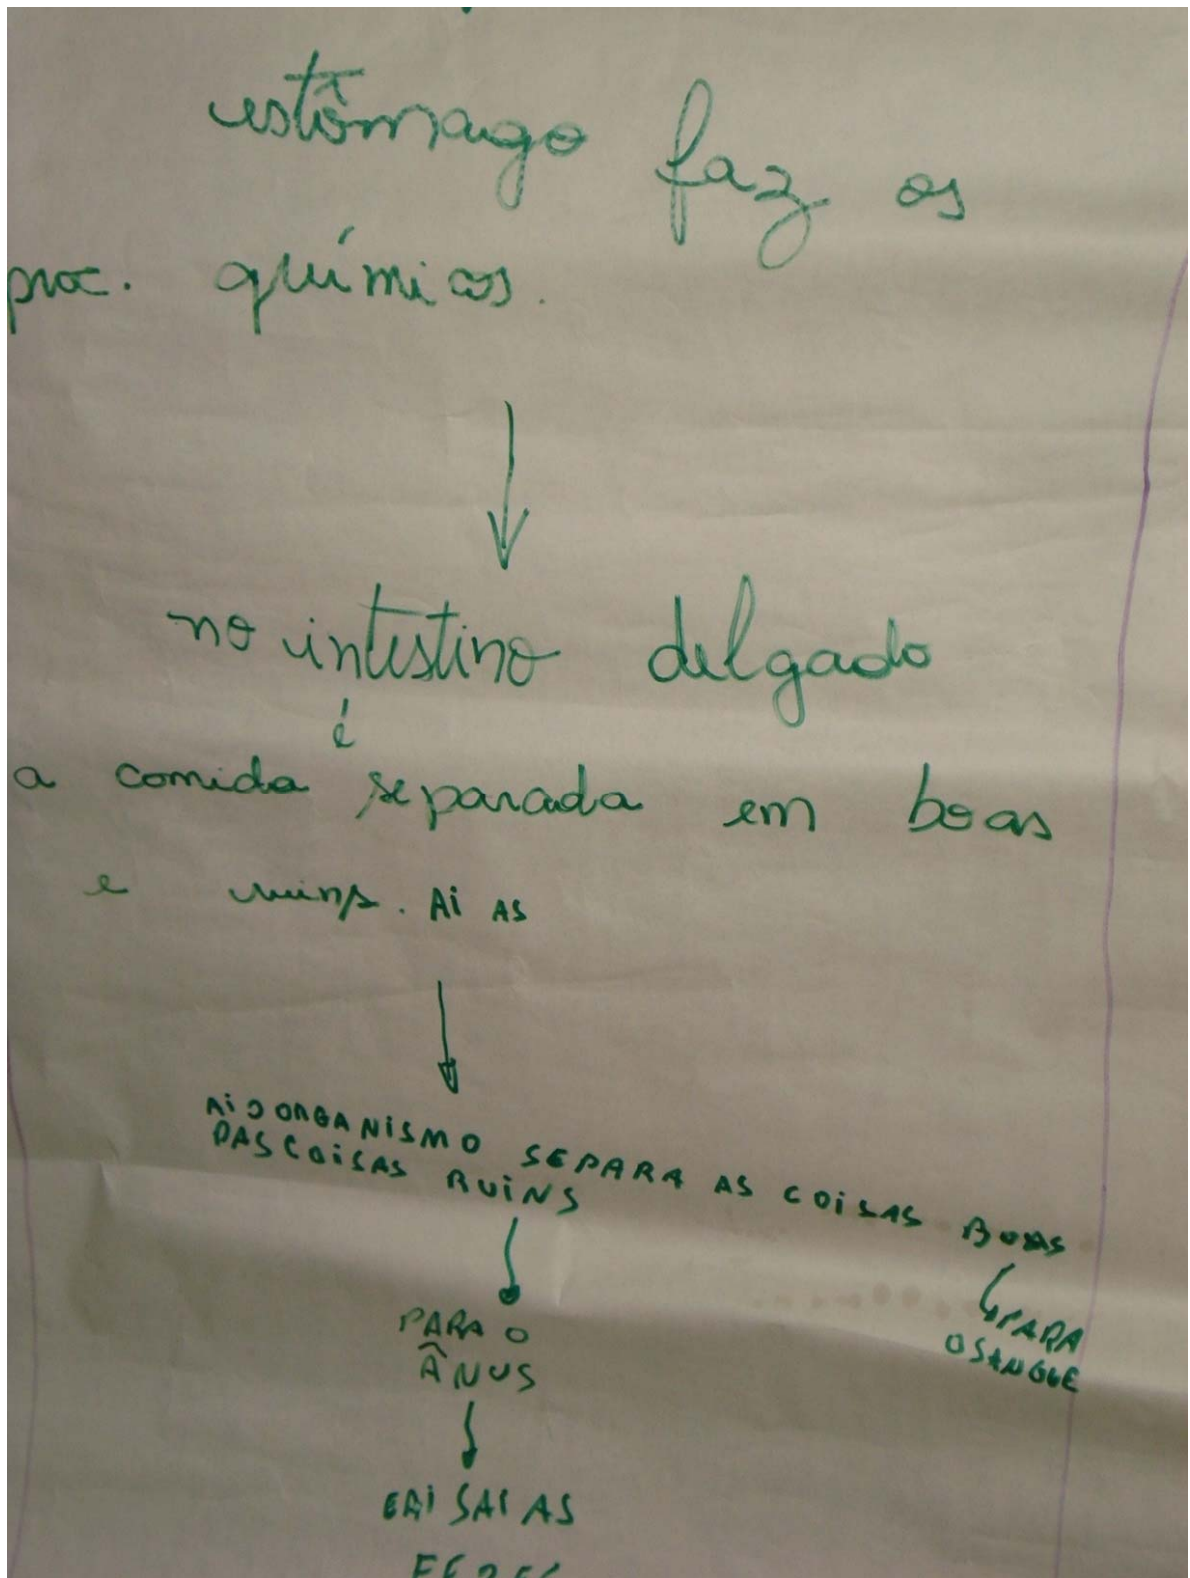 estômago faz os
proc. químicos.
no intestino delgado
é
a comida separada em boas
e ruins. Ai AS
Ai O ORGANISMO SEPARA AS COISAS BOAS
DAS COISAS RUINS
PARA O
ÂNUS
PARA
O SANGUE
E Ai SAI AS